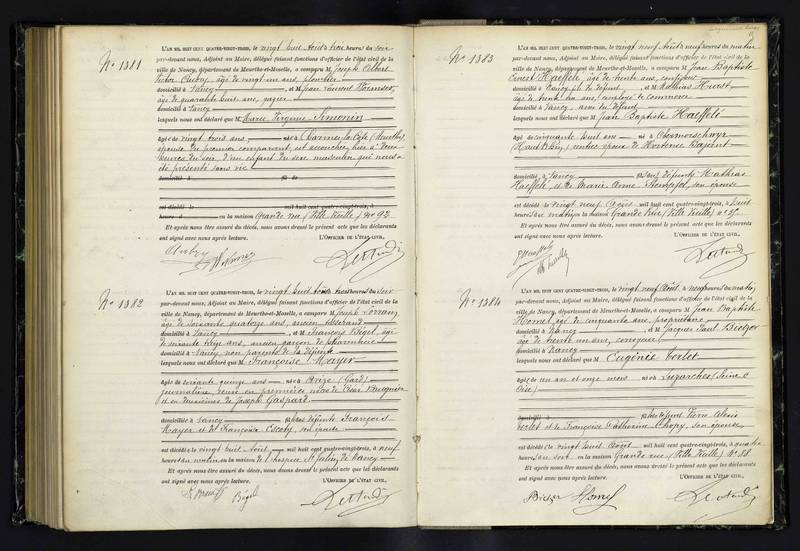 No 1381
L'AN MIL HUIT CENT QUATRE-VINGT-TROIS, le vingt huit Août à trois heures du soir
par-devant nous, Adjoint au Maire, délégué faisant fonctions d'officier de l'état civil de la
ville de Nancy, département de Meurthe-et-Moselle, a comparu M. Joseph Albert
Victor Aubry, âgé de vingt un ans, plombier
domicilié à Nancy, et M Jean Laurent
âgé de quarante huit ans, gazier
domicilié à Nancy
lesquels nous ont déclaré que M Marie Virginie Simonin
âgée de vingt trois ans née à Charmes la Côte (Meurthe),
épouse du premier comparant, est accouchée hier à deux
heures du soir, d'un enfant du sexe masculin qui nous a
été présenté sans vie
domicilié à fil de
est décédé le mil huit cent quatre-vingt-trois, à
heures en la maison Grande rue (Ville Vieille) No 92
Et après nous être assuré du décès, nous avons dressé le présent acte que les déclarants
ont signé avec nous après lecture. L'OFFICIER DE L'ÉTAT CIVIL,
Aubry
No 1382
L'AN MIL HUIT CENT QUATRE-VINGT-TROIS, le vingt huit Août à trois heures du soir
par-devant nous, Adjoint au Maire, délégué faisant fonctions d'officier de l'état civil de la
ville de Nancy, département de Meurthe-et-Moselle, a comparu M. Joseph Lorrain
âgé de soixante quatorze ans, ancien tisserand
domicilié à Nancy, et M François Bigel âgé
de soixante treize ans, ancien garçon de pharmacie
domicilié à Nancy non parents de la défunte
lesquels nous ont déclaré que M Françoise Mayer
âgée de soixante quinze ans née à (Gard)
journalière, veuve en premières noces de
et en deuxièmes de Joseph Gaspard
domiciliée à Nancy fille des défunts François
Mayer et de Françoise son épouse
est décédée le vingt huit Août mil huit cent quatre-vingt-trois, à neuf
heures du matin en la maison de l'hospice St Julien de Nancy
Et après nous être assuré du décès, nous avons dressé le présent acte que les déclarants
ont signé avec nous après lecture. L'OFFICIER DE L'ÉTAT CIVIL,
Bigel
No 1383
L'AN MIL HUIT CENT QUATRE-VINGT-TROIS, le vingt neuf Août à neuf heures du matin
par-devant nous, Adjoint au Maire, délégué faisant fonctions d'officier de l'état civil de la
ville de Nancy, département de Meurthe-et-Moselle, a comparu M. Jean Baptiste
Ernest Haeffelé, âgé de trente ans,
domicilié à Nancy fils du défunt, et M Mathias Hurst,
âgé de trente un ans, employé de commerce
domicilié à Nancy ami du défunt
lesquels nous ont déclaré que M Jean Baptiste Haeffelé
âgé de cinquante huit ans né à Obermorschwyr
(Haut Rhin) époux de Hortense
domicilié à Nancy fils des défunts Mathias
Haeffelé, et de Marie Anne son épouse
est décédé le vingt neuf Août mil huit cent quatre-vingt-trois, à huit
heures du matin en la maison Grande Rue (Ville Vieille)
Et après nous être assuré du décès, nous avons dressé le présent acte que les déclarants
ont signé avec nous après lecture. L'OFFICIER DE L'ÉTAT CIVIL,
No 1384
L'AN MIL HUIT CENT QUATRE-VINGT-TROIS, le vingt neuf Août, à neuf heures du matin,
par-devant nous, Adjoint au Maire, délégué faisant fonctions d'officier de l'état civil de la
ville de Nancy, département de Meurthe-et-Moselle, a comparu M. Jean Baptiste
âgé de cinquante ans, propriétaire
domicilié à Nancy, et M Jacques Paul
âgé de trente un ans, corroyeur
domicilié à Nancy
lesquels nous ont déclaré que M Eugénie Verlet
âgée de un an et onze mois née à Luzarches (Seine &
Oise)
domiciliée à fille de Alexis
Verlet et de Françoise Catherine son épouse
est décédée le vingt huit Août mil huit cent quatre-vingt-trois, à quatre
heures du soir en la maison Grande rue (Ville Vieille) No 88
Et après nous être assuré du décès, nous avons dressé le présent acte que les déclarants
ont signé avec nous après lecture. L'OFFICIER DE L'ÉTAT CIVIL,